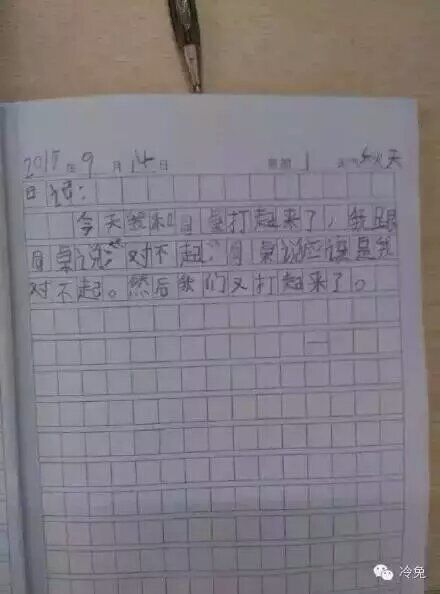 2015年9月14日 星期1 天气秋天
日记:
今天我和同桌打起来了,我跟
同桌说:“对不起”同桌说应该是我
对不起。然后我们又打起来了。
冷兔